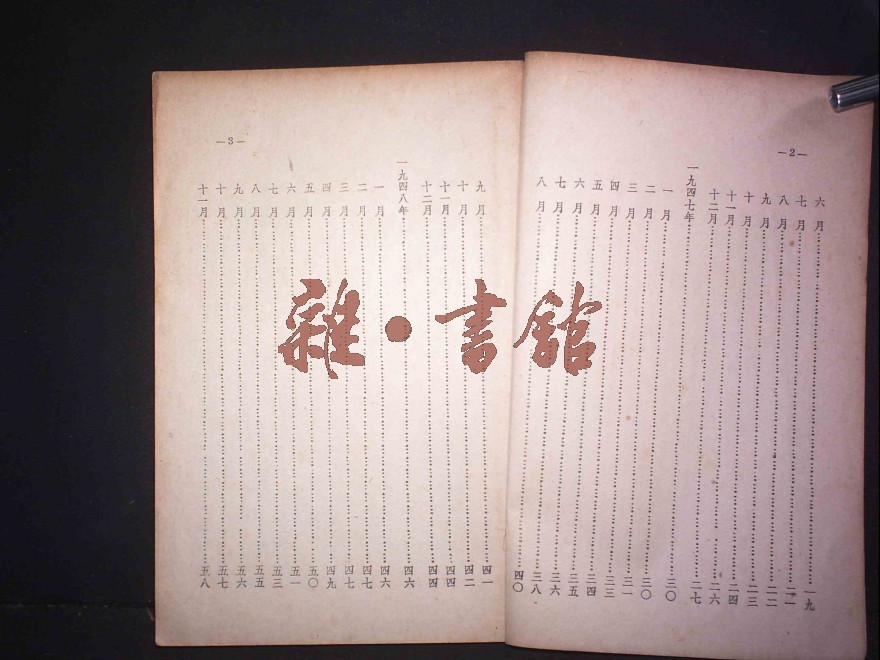 —2—
六月……一九
七月……二一
八月……二二
九月……二三
十月……二四
十一月……二六
十二月……二七
一九四七年……三〇
一月……三〇
二月……三一
三月……三三
四月……三四
五月……三五
六月……三六
七月……三八
八月……四〇
—3—
九月……四一
十月……四二
十一月……四四
十二月……四四
一九四八年……四六
一月……四六
二月……四七
三月……四七
四月……四九
五月……五〇
六月……五一
七月……五三
八月……五五
九月……五六
十月……五七
十一月……五八
雜·書館